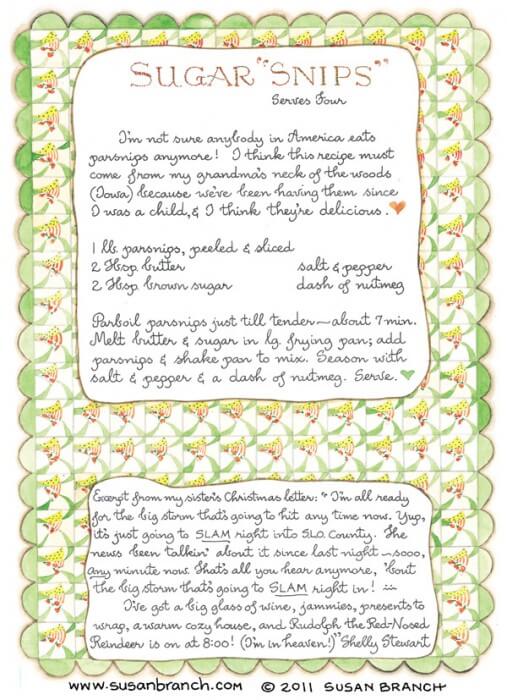 SUGAR "SNIPS"
Serves Four
I'm not sure anybody in America eats
parsnips anymore! I think this recipe must
come from my grandma's neck of the woods
(Iowa) because we've been having them since
I was a child, & I think they're delicious.
1 lb. parsnips, peeled & sliced
2 Tbsp. butter
salt & pepper
2 Tbsp. brown sugar
dash of nutmeg
Parboil parsnips just till tender—about 7 min.
Melt butter & sugar in lg. frying pan; add
parsnips & shake pan to mix. Season with
salt & pepper & a dash of nutmeg. Serve.
Excerpt from my sister's Christmas letter: "I'm all ready
for the big storm that's going to hit any time now. Yup,
it's just going to SLAM right into S.L.O. County. The
news been talkin' about it since last night—sooo,
any minute now. That's all you hear anymore, 'bout
the big storm that's going to SLAM right in!
I've got a big glass of wine, jammies, presents to
wrap, a warm cozy house, and Rudolph the Red-Nosed
Reindeer is on at 8:00! (I'm in heaven!)" Shelly Stewart
www.susanbranch.com © 2011 SUSAN BRANCH